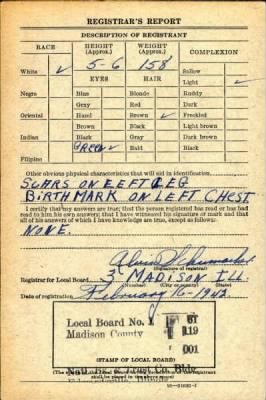 REGISTRAR'S REPORT
DESCRIPTION OF REGISTRANT
RACE HEIGHT (Approx.) WEIGHT (Approx.) COMPLEXION
White ✓ 5-6 158 Sallow
EYES HAIR Light ✓
Negro Blue Blonde Ruddy
Gray Red Dark
Oriental Hazel Brown ✓ Freckled
Brown Black Light brown
Indian Black Gray Dark brown
GREEN ✓ Bald Black
Filipino
Other obvious physical characteristics that will aid in identification
SCARS ON LEFT LEG
BIRTH MARK ON LEFT CHEST
I certify that my answers are true; that the person registered has read or has had
read to him his own answers; that I have witnessed his signature or mark and that
all of his answers of which I have knowledge are true, except as follows:
NONE.
(Signature of registrar)
Registrar for Local Board 3 MADISON ILL.
(Number) (City or county) (State)
Date of registration February 16-1942
Local Board No. 1 61
Madison County 119
001
Natl. Bk. & Trust Co. Bldg.
(STAMP OF LOCAL BOARD)
shall be placed in the above space.)